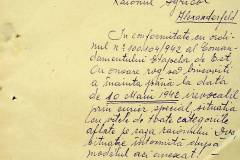 Raionul Agricol
Alexanderfeld
In conformitate cu ordi-
nul No 100404/942 al Coman-
damentului Etapelor de Est,
Cu onoare rog să binevoiți
a înainta până la data
de 10 Martie 1942, irevocabil
prin curier special, situația
cu vitele de toate categoriile
aflate pe raza raionului Dvs.
Situație întocmită după
modelul aci anexat! —